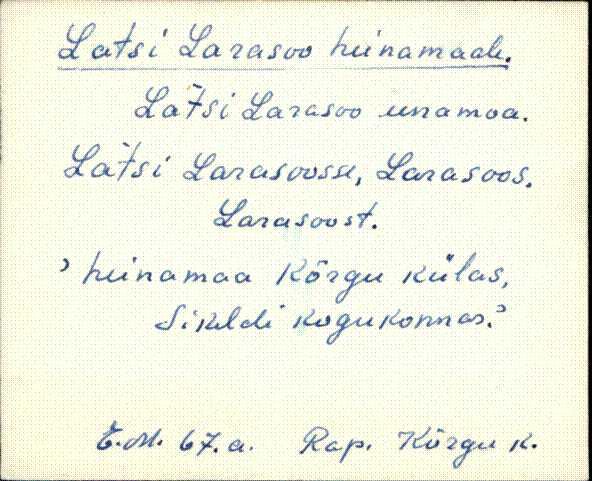 Latsi Larasoo heinamaale.
Lätsi Larasoo einamoa.
Lätsi Larasoosse, Larasoos,
Larasoost.
'heinamaa Kõrgu külas,
Sikeldi kogukonnas.'
E.M. 67.a. Rap. Kõrgu k.